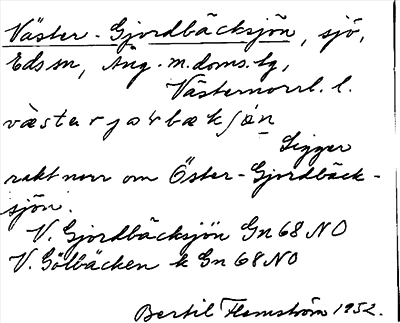 Väster-Gjordbäcksjön, sjö,
Eds sn, Ång. m. doms. tg,
Västernorrl. l.
Ligger
rakt norr om Öster-Gjordbäck-
sjön.
V. Gjordbäcksjön Gn 68 NO
V. Gölbäcken k Gn 68 NO
Bertil Flemström 1952.